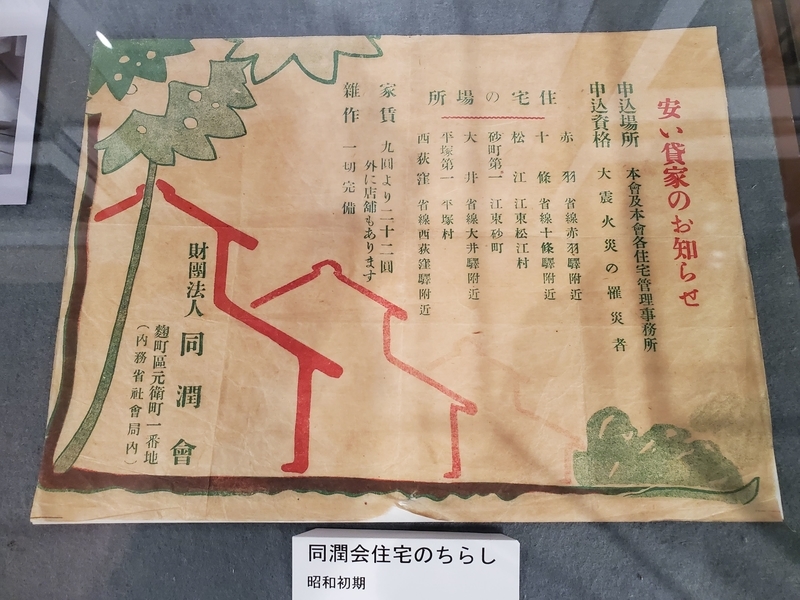 安い貸家のお知らせ
申込場所 本會及本會各住宅管理事務所
申込資格 大震火災の罹災者
住宅の場所
赤羽 省線赤羽驛附近
十條 省線十條驛附近
松江 江東松江村
砂町第一 江東砂町
大井 省線大井驛附近
平塚第一 平塚村
西荻窪 省線西荻窪驛附近
家賃 九圓より二十二圓
外に店舗もあります
雜作 一切完備
財團法人 同潤會
麴町區元衛町一番地
(內務省社會局內)
同潤会住宅のちらし
昭和初期